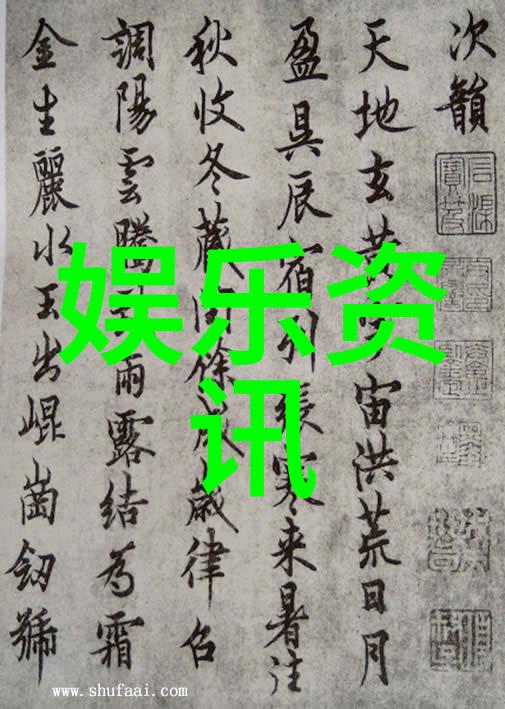 次韻
天地玄黄宇宙洪荒日月
盈昃辰宿列張寒来暑往
秋收冬藏閏餘成歲律召
調陽雲騰致雨露結為霜
金生麗水玉出崐崗劒號
娱乐资
讯
www.shufaai.com